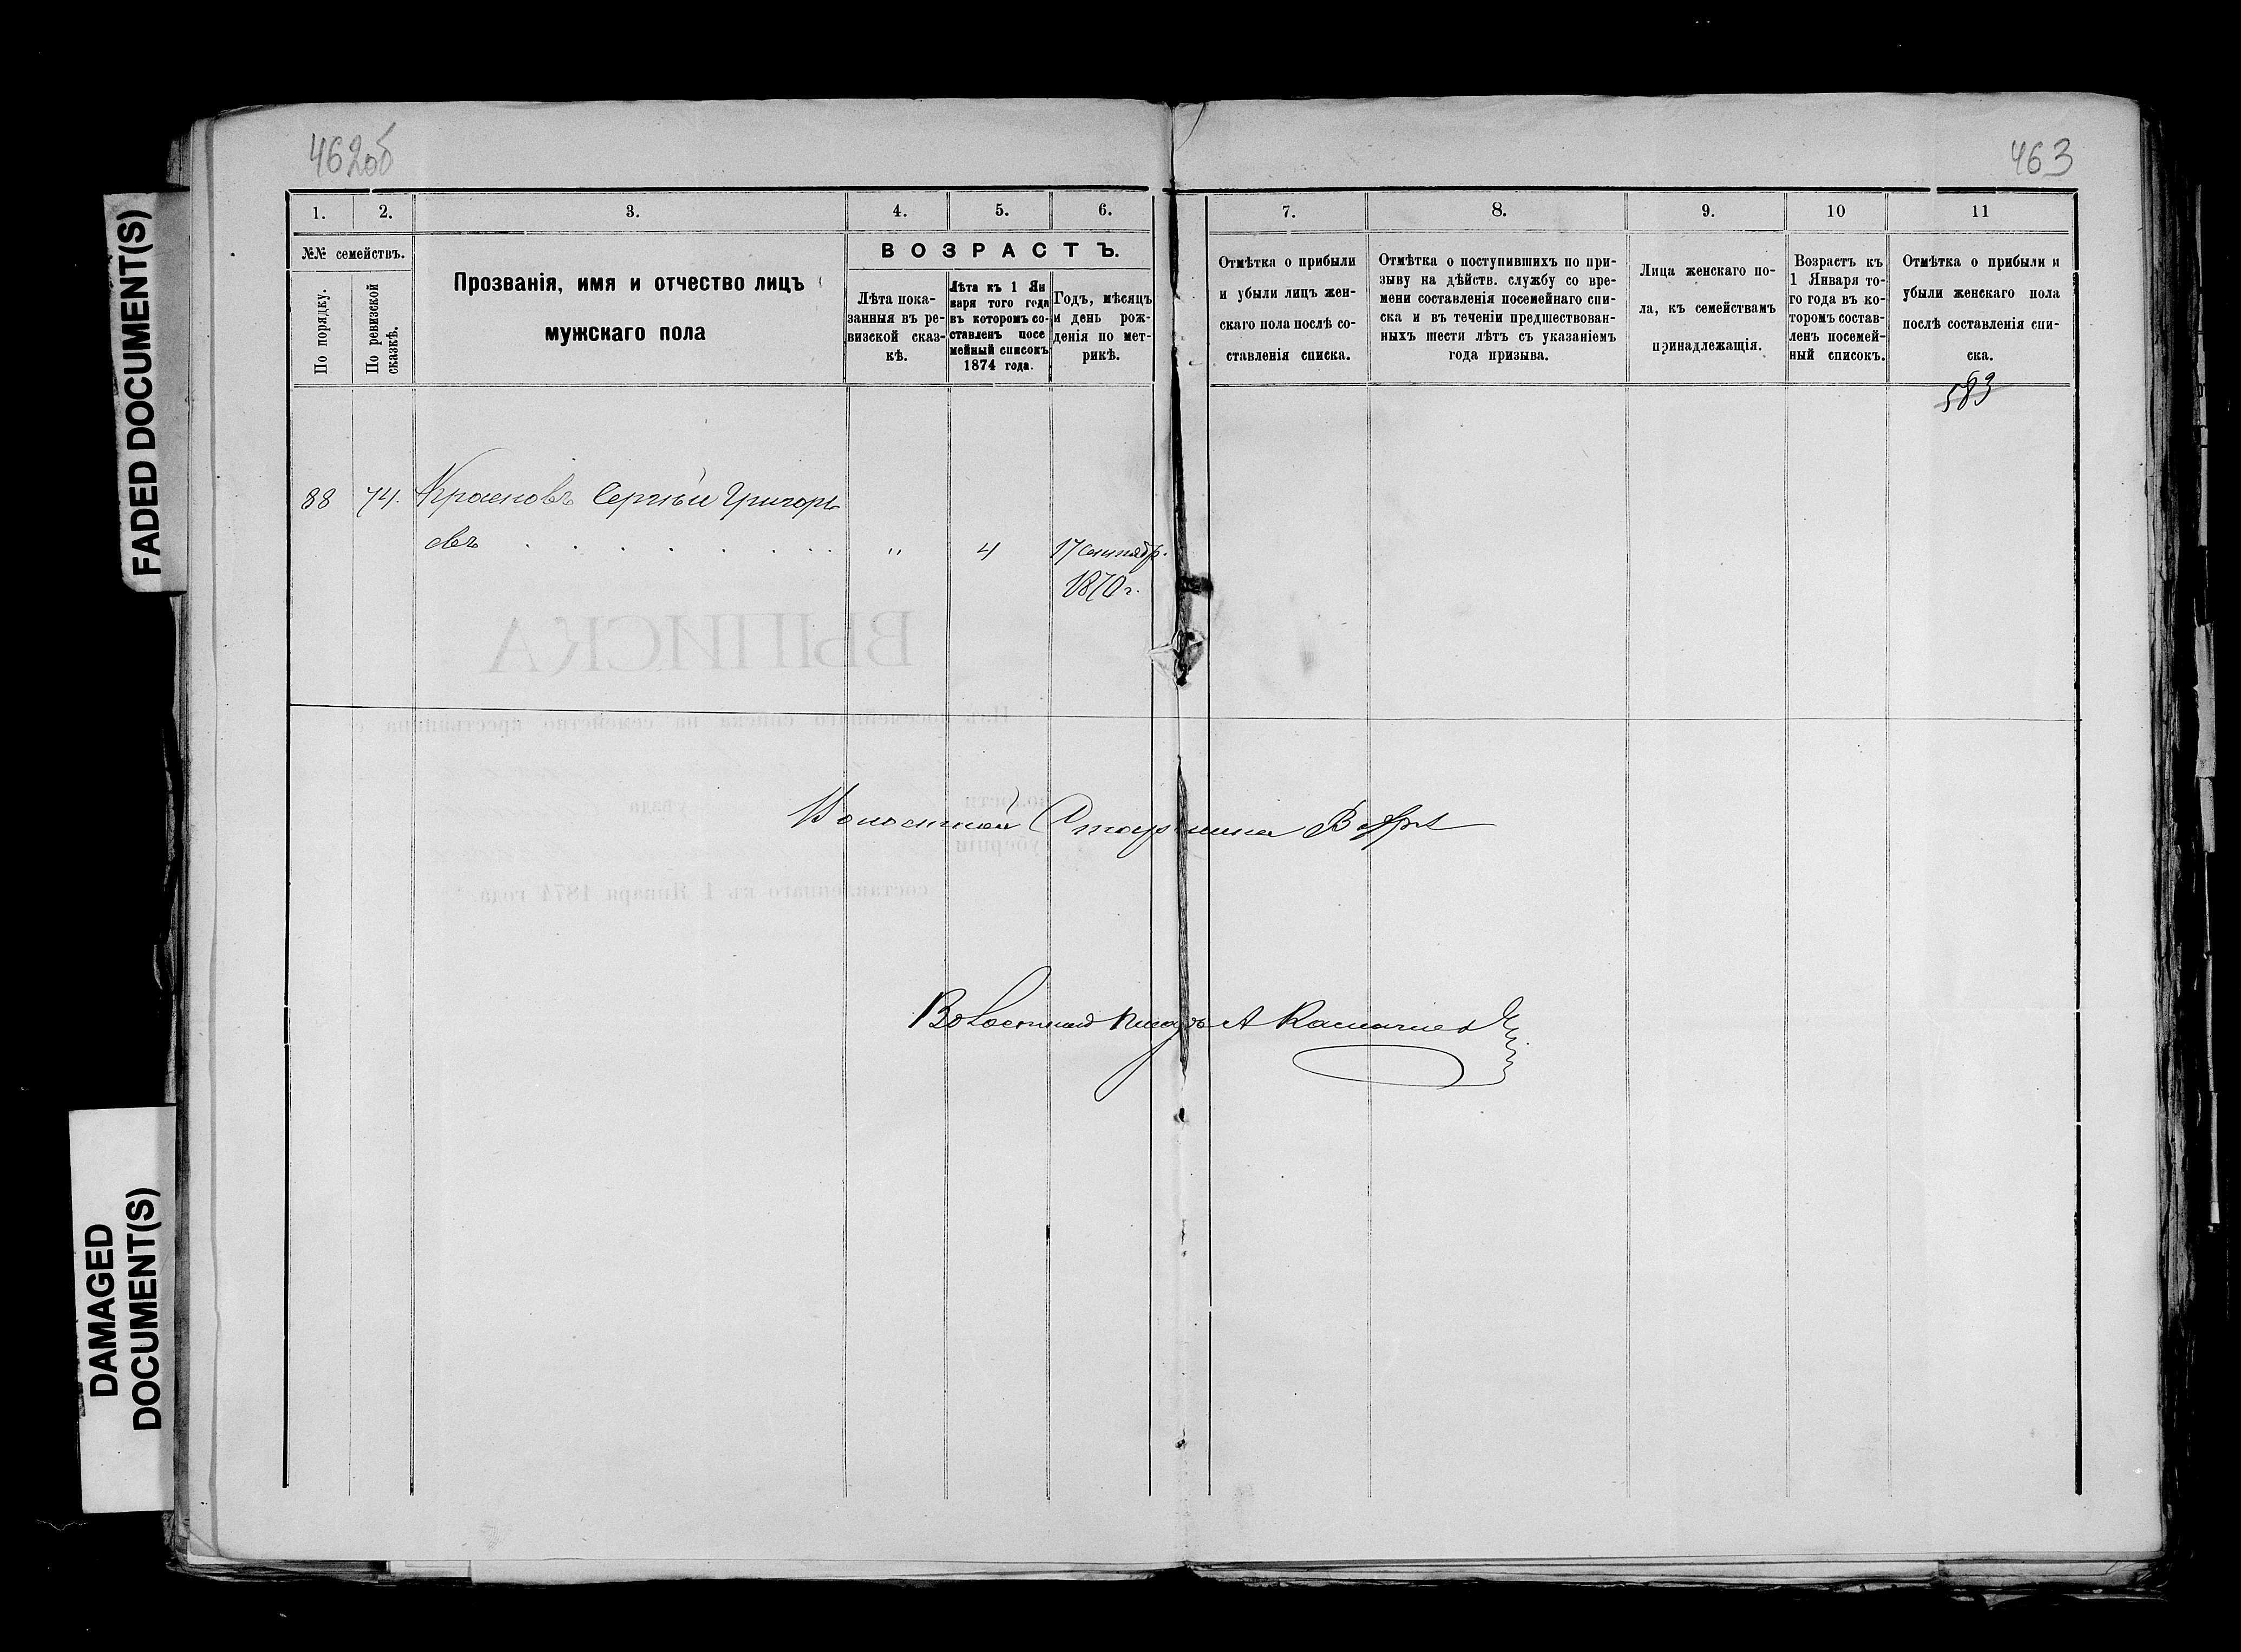 462об
463
1.
2.
3.
4.
5.
6.
7.
8.
9.
10
11
№№ семействъ.
По порядку.
По ревизской
сказкѣ.
Прозванія, имя и отчество лицъ
мужскаго пола
ВОЗРАСТЪ.
Лѣта пока-
занныя въ ре-
визской сказ-
кѣ.
Лѣта къ 1 Ян
варя того года
въ которомъ со-
ставленъ посе
мейный списокъ
1874 года.
Годъ, мѣсяцъ
и день рож-
денія по мет-
рикѣ.
Отмѣтка о прибыли
и убыли лицъ жен-
скаго пола послѣ со-
ставленія списка.
Отмѣтка о поступившихъ по при-
зыву на дѣйств. службу со вре-
мени составленія посемейнаго спи-
ска и въ теченіи предшествован-
ныхъ шести лѣтъ съ указаніемъ
года призыва.
Лица женскаго по-
ла, къ семействамъ
принадлежащія.
Возрастъ къ
1 Января то-
го года въ ко-
торомъ состав-
ленъ посемей-
ный списокъ.
Отмѣтка о прибыли и
убыли женскаго пола
послѣ составленія спи-
ска.
583
88 74. Красновъ Сергѣй Григорь
евъ . . . . . . . " 4 17 Сентябр.
1870 г.
ВЫПИСКА
Изъ посемейнаго списка на семейство крестьянина с
волости
уѣзда
губерніи
составленнаго къ 1 Января 1874 года.
Волостной Старшина
Волостной писарь А
FADED DOCUMENT(S)
DAMAGED
DOCUMENT(S)